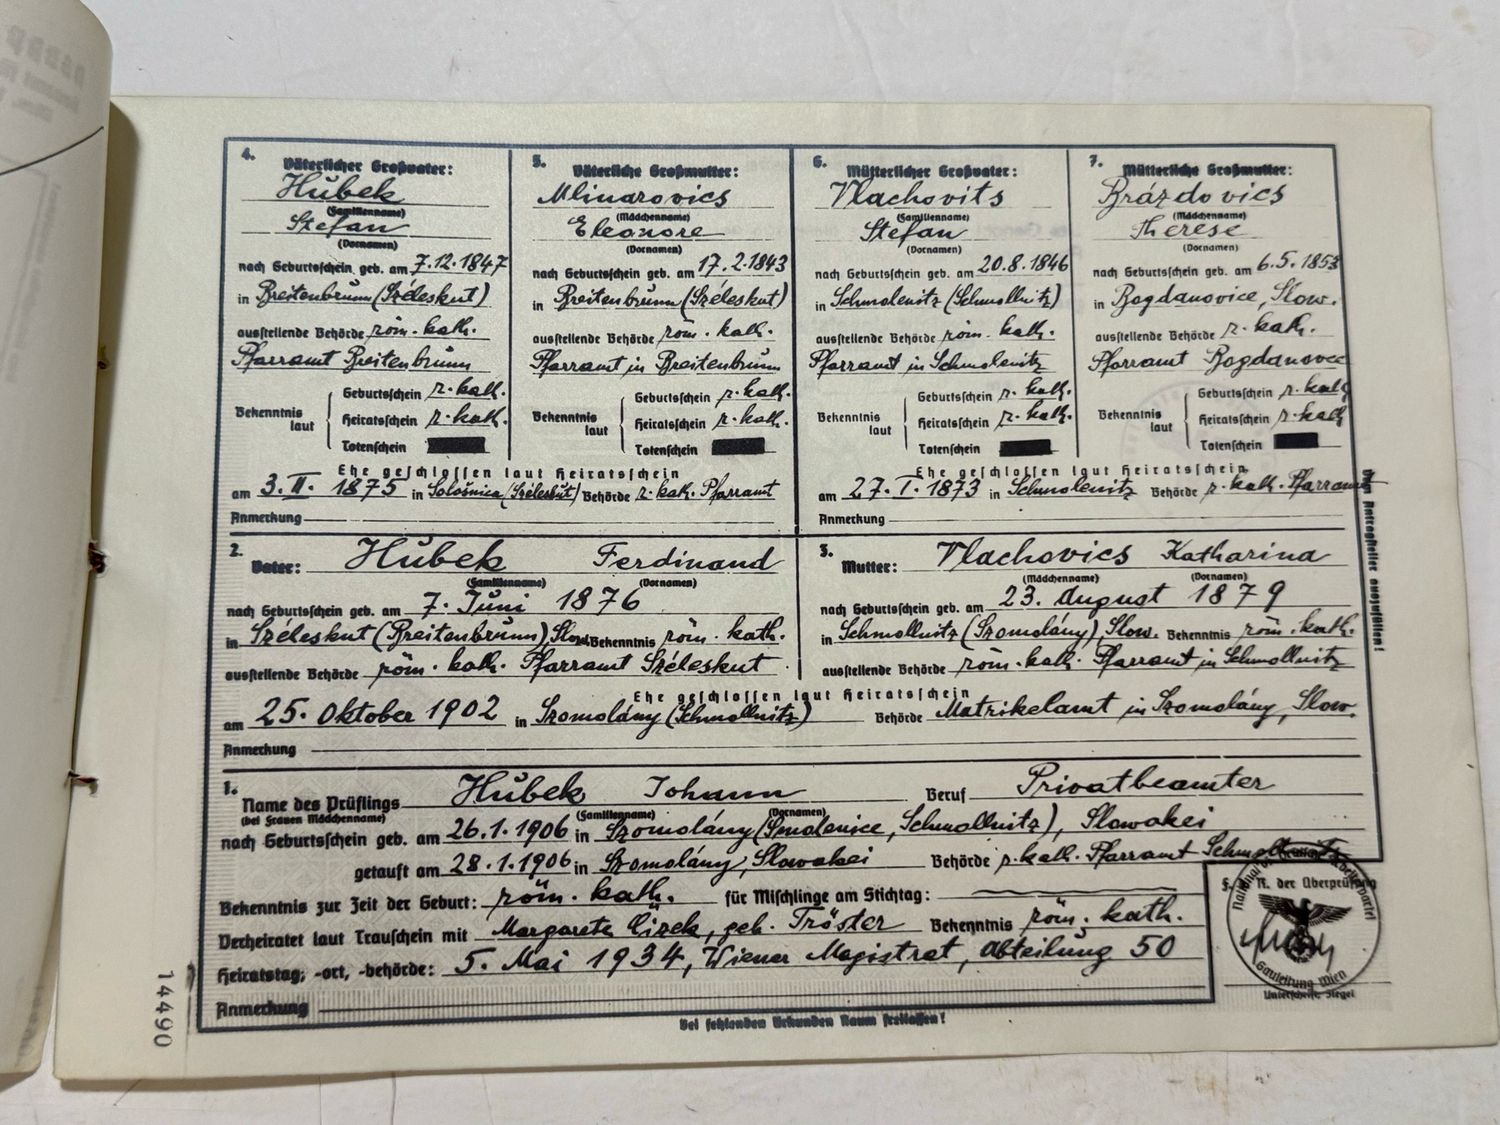 4.
Väterlicher Großvater:
Hubek
(Familienname)
Stefan
(Vornamen)
nach Geburtsschein geb. am 7.12.1847
in Breitenbrunn (Széleskut)
ausstellende Behörde röm. kath.
Pfarramt Breitenbrunn
Bekenntnis laut
Geburtsschein r. kath.
Heiratsschein r. kath.
Totenschein
5.
Väterliche Großmutter:
Mlinarovics
(Mädchenname)
Eleonore
(Vornamen)
nach Geburtsschein geb. am 17.2.1843
in Breitenbrunn (Széleskut)
ausstellende Behörde röm. kath.
Pfarramt in Breitenbrunn
Bekenntnis laut
Geburtsschein r. kath.
Heiratsschein r. kath.
Totenschein
Ehe geschlossen laut Heiratsschein
am 3. II. 1875 in Sološnica (Széleskut) Behörde r. kath. Pfarramt
Anmerkung
6.
Mütterlicher Großvater:
Vlachovits
(Familienname)
Stefan
(Vornamen)
nach Geburtsschein geb. am 20.8.1846
in Schmolenitz (Schmollnitz)
ausstellende Behörde röm. kath.
Pfarramt in Schmolenitz
Bekenntnis laut
Geburtsschein r. kath.
Heiratsschein r. kath.
Totenschein
7.
Mütterliche Großmutter:
Brázdovics
(Mädchenname)
Therese
(Vornamen)
nach Geburtsschein geb. am 6.5.1853
in Bogdanovice, Slow.
ausstellende Behörde r. kath.
Pfarramt Bogdanovce
Bekenntnis laut
Geburtsschein r. kath
Heiratsschein r. kath
Totenschein
Ehe geschlossen laut Heiratsschein
am 27. I. 1873 in Schmolenitz Behörde r. kath. Pfarramt
Anmerkung
2.
Vater: Hubek Ferdinand
(Familienname) (Vornamen)
nach Geburtsschein geb. am 7. Juni 1876
in Széleskut (Breitenbrunn) Slow. Bekenntnis röm. kath.
ausstellende Behörde röm. kath. Pfarramt Széleskut
3.
Mutter: Vlachovics Katharina
(Mädchenname) (Vornamen)
nach Geburtsschein geb. am 23. August 1879
in Schmollnitz (Szomolány), Slow. Bekenntnis röm. kath.
ausstellende Behörde röm. kath. Pfarramt in Schmollnitz
Ehe geschlossen laut Heiratsschein
am 25. Oktober 1902 in Szomolány (Schmollnitz) Behörde Matrikelamt in Szomolány, Slow.
Anmerkung
1.
Name des Prüflings Hubek Johann Beruf Privatbeamter
(bei Frauen Mädchenname) (Familienname) (Vornamen)
nach Geburtsschein geb. am 26.1.1906 in Szomolány (Smolenice, Schmollnitz), Slowakei
getauft am 28.1.1906 in Szomolány, Slowakei Behörde r. kath. Pfarramt Schmollnitz
Bekenntnis zur Zeit der Geburt: röm. kath. für Mischlinge am Stichtag:
Verheiratet laut Trauschein mit Margarete Cizek, geb. Tröster Bekenntnis röm. kath.
Heiratstag, -ort, -behörde: 5. Mai 1934, Wiener Magistrat, Abteilung 50
Anmerkung
F. d. R. der Überprüfung
Gauleitung Wien
Unterschrift, Siegel
Bei fehlenden Urkunden Raum freilassen!
Vom Antragsteller auszufüllen!
14490